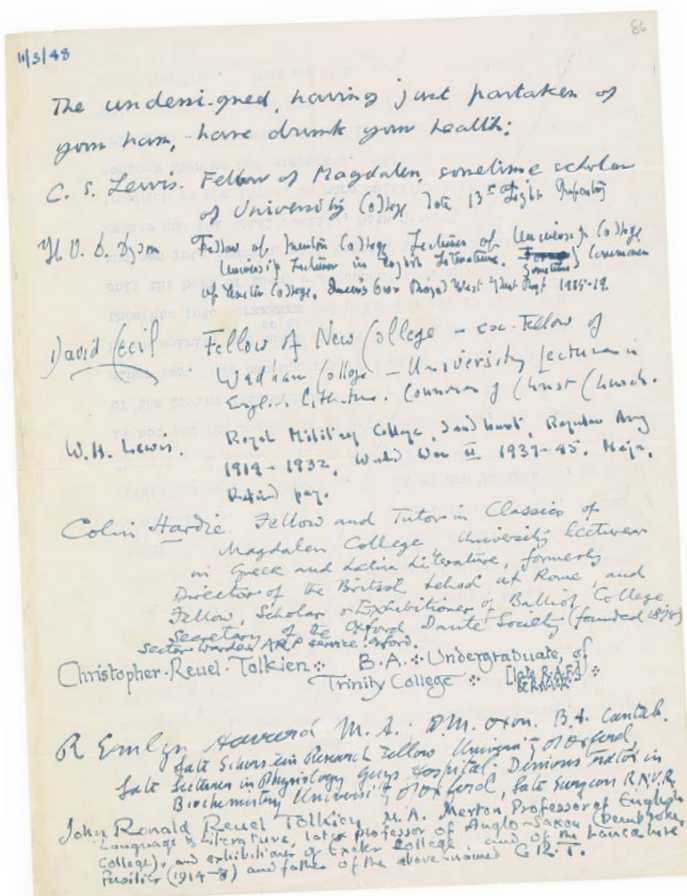 86
11/3/48
The undersigned, having just partaken of
your ham, have drunk your health:
C. S. Lewis. Fellow of Magdalen, sometime scholar
of University College late 13th Light Infantry
H. V. D. Dyson Fellow of Merton College Lecturer of University College
University Lecturer in English Literature. sometime Commoner
of Exeter College, Queen's Own Royal West Kent Regt 1915-19.
David Cecil. Fellow of New College – sometime Fellow of
Wadham College – University Lecturer in
English Literature. Commoner of Christ Church.
W. H. Lewis. Royal Military College, Sandhurst, Regular Army
1914 - 1932. World War II 1939-45. Major,
Retired pay.
Colin Hardie Fellow and Tutor in Classics of
Magdalen College University lecturer
in Greek and Latin Literature, formerly
Director of the British School at Rome, and
Fellow, Scholar & Exhibitioner of Balliol College
Secretary of the Oxford Dante Society (founded 1876)
Sector warden A.R.P service Oxford.
Christopher·Reuel·Tolkien B.A. Undergraduate, of
Trinity College [late R.A.F.]
R Emlyn Havard M.A. D.M. Oxon. B.A. Cantab.
late Research Fellow University of Oxford
late Lecturer in Physiology Guys Hospital. Demonstrator in
Biochemistry University of Oxford, late Surgeon R.N.V.R.
John Ronald Reuel Tolkien M.A. Merton Professor of English
Language & Literature, late professor of Anglo-Saxon (Pembroke
College), and exhibitioner of Exeter College, and of the Lancashire
Fusiliers (1914-8) and father of the above-named C.R.T.